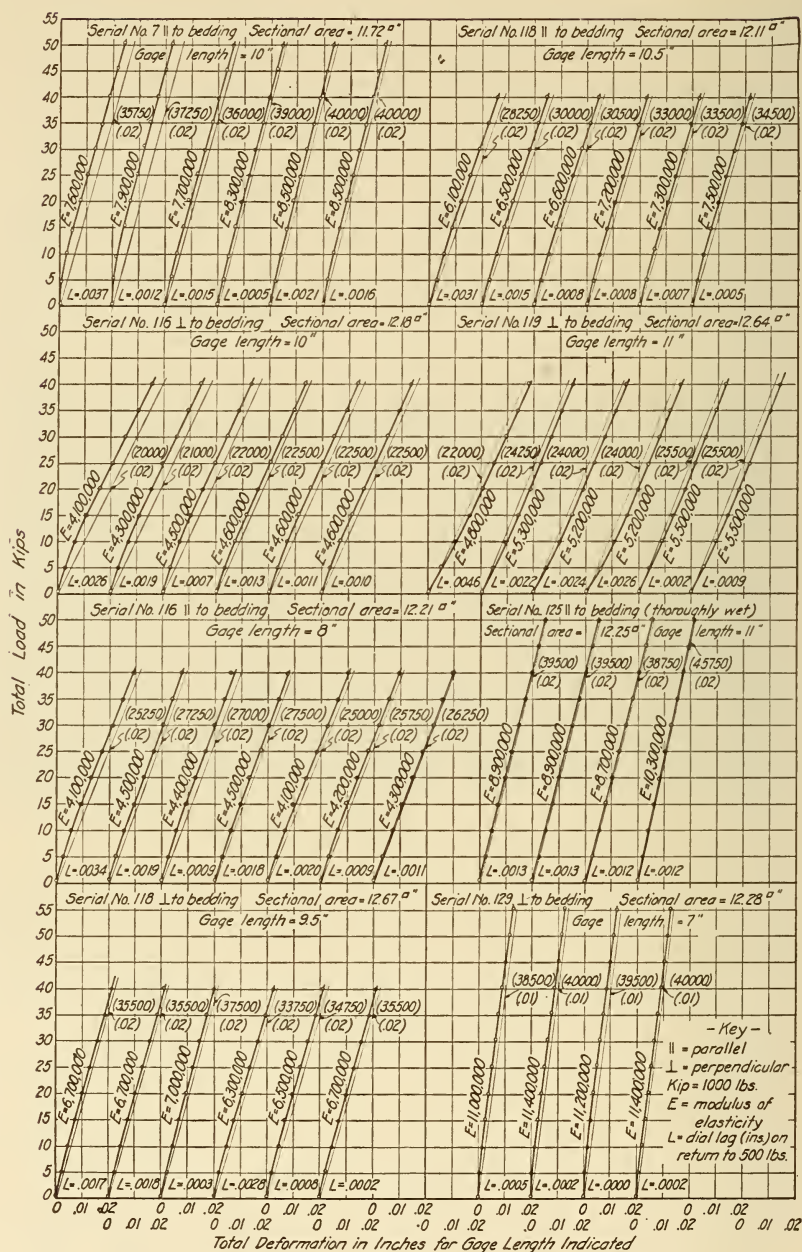 Serial No. 7 || to bedding Sectional area = 11.72 □"
Gage length = 10"
(35750) (37250) (36000) (39000) (40000) (40000)
(.02) (.02) (.02) (.02) (.02) (.02)
E=7,600,000 E=7,900,000 E=7,700,000 E=8,300,000 E=8,500,000 E=8,500,000
L=.0037 L=.0012 L=.0015 L=.0005 L=.0021 L=.0016
Serial No. 118 || to bedding Sectional area = 12.11 □"
Gage length = 10.5"
(28250) (30000) (30500) (33000) (33500) (34500)
(.02) (.02) (.02) (.02) (.02) (.02)
E=6,100,000 E=6,500,000 E=6,600,000 E=7,200,000 E=7,300,000 E=7,500,000
L=.0031 L=.0015 L=.0008 L=.0008 L=.0007 L=.0005
55
50
45
40
35
30
25
20
15
10
5
0
Serial No. 116 ⊥ to bedding Sectional area = 12.18 □"
Gage length = 10"
(20000) (21000) (22000) (22500) (22500) (22500)
(.02) (.02) (.02) (.02) (.02) (.02)
E=4,100,000 E=4,300,000 E=4,500,000 E=4,600,000 E=4,600,000 E=4,600,000
L=.0026 L=.0019 L=.0007 L=.0013 L=.0011 L=.0010
Serial No. 119 ⊥ to bedding Sectional area=12.64 □"
Gage length = 11"
(22000) (24250) (24000) (24000) (25500) (25500)
(.02) (.02) (.02) (.02) (.02) (.02)
E=5,300,000 E=5,200,000 E=5,200,000 E=5,500,000 E=5,500,000
L=.0046 L=.0022 L=.0024 L=.0026 L=.0002 L=.0009
50
45
40
35
30
25
20
15
10
5
0
Total Load in Kips
Serial No. 116 || to bedding Sectional area = 12.21 □"
Gage length = 8"
(25250) (27250) (27000) (27500) (25000) (25750) (26250)
(.02) (.02) (.02) (.02) (.02) (.02) (.02)
E=4,100,000 E=4,500,000 E=4,400,000 E=4,500,000 E=4,100,000 E=4,200,000 E=4,300,000
L=.0034 L=.0019 L=.0009 L=.0018 L=.0020 L=.0009 L=.0011
Serial No. 125 || to bedding (thoroughly wet)
Sectional area = 12.25 □" Gage length = 11"
(39500) (39500) (38750) (45750)
(.02) (.02) (.02) (.02)
E=8,900,000 E=8,900,000 E=8,700,000 E=10,300,000
L=.0013 L=.0013 L=.0012 L=.0012
50
45
40
35
30
25
20
15
10
5
0
Serial No. 118 ⊥ to bedding Sectional area = 12.67 □"
Gage length = 9.5"
(35500) (35500) (37500) (33750) (34750) (35500)
(.02) (.02) (.02) (.02) (.02) (.02)
E=6,700,000 E=6,700,000 E=7,000,000 E=6,300,000 E=6,500,000 E=6,700,000
L=.0017 L=.0018 L=.0003 L=.0028 L=.0008 L=.0002
Serial No. 129 ⊥ to bedding Sectional area = 12.28 □"
Gage length = 7"
(38500) (40000) (39500) (40000)
(.01) (.01) (.01) (.01)
E=11,000,000 E=11,400,000 E=11,200,000 E=11,400,000
L=.0005 L=.0002 L=.0000 L=.0002
- Key -
|| = parallel
⊥ = perpendicular
Kip = 1000 lbs.
E = modulus of
elasticity
L = dial lag (ins.) on
return to 500 lbs.
55
50
45
40
35
30
25
20
15
10
5
0
0 .01 .02 .01 .02 .01 .02 .01 .02 .01 .02 .01 .02 .01 .02
0 .01 .02 0 .01 .02 0 .01 .02 0 .01 .02 0 .01 .02 0 .01 .02
Total Deformation in Inches for Gage Length Indicated